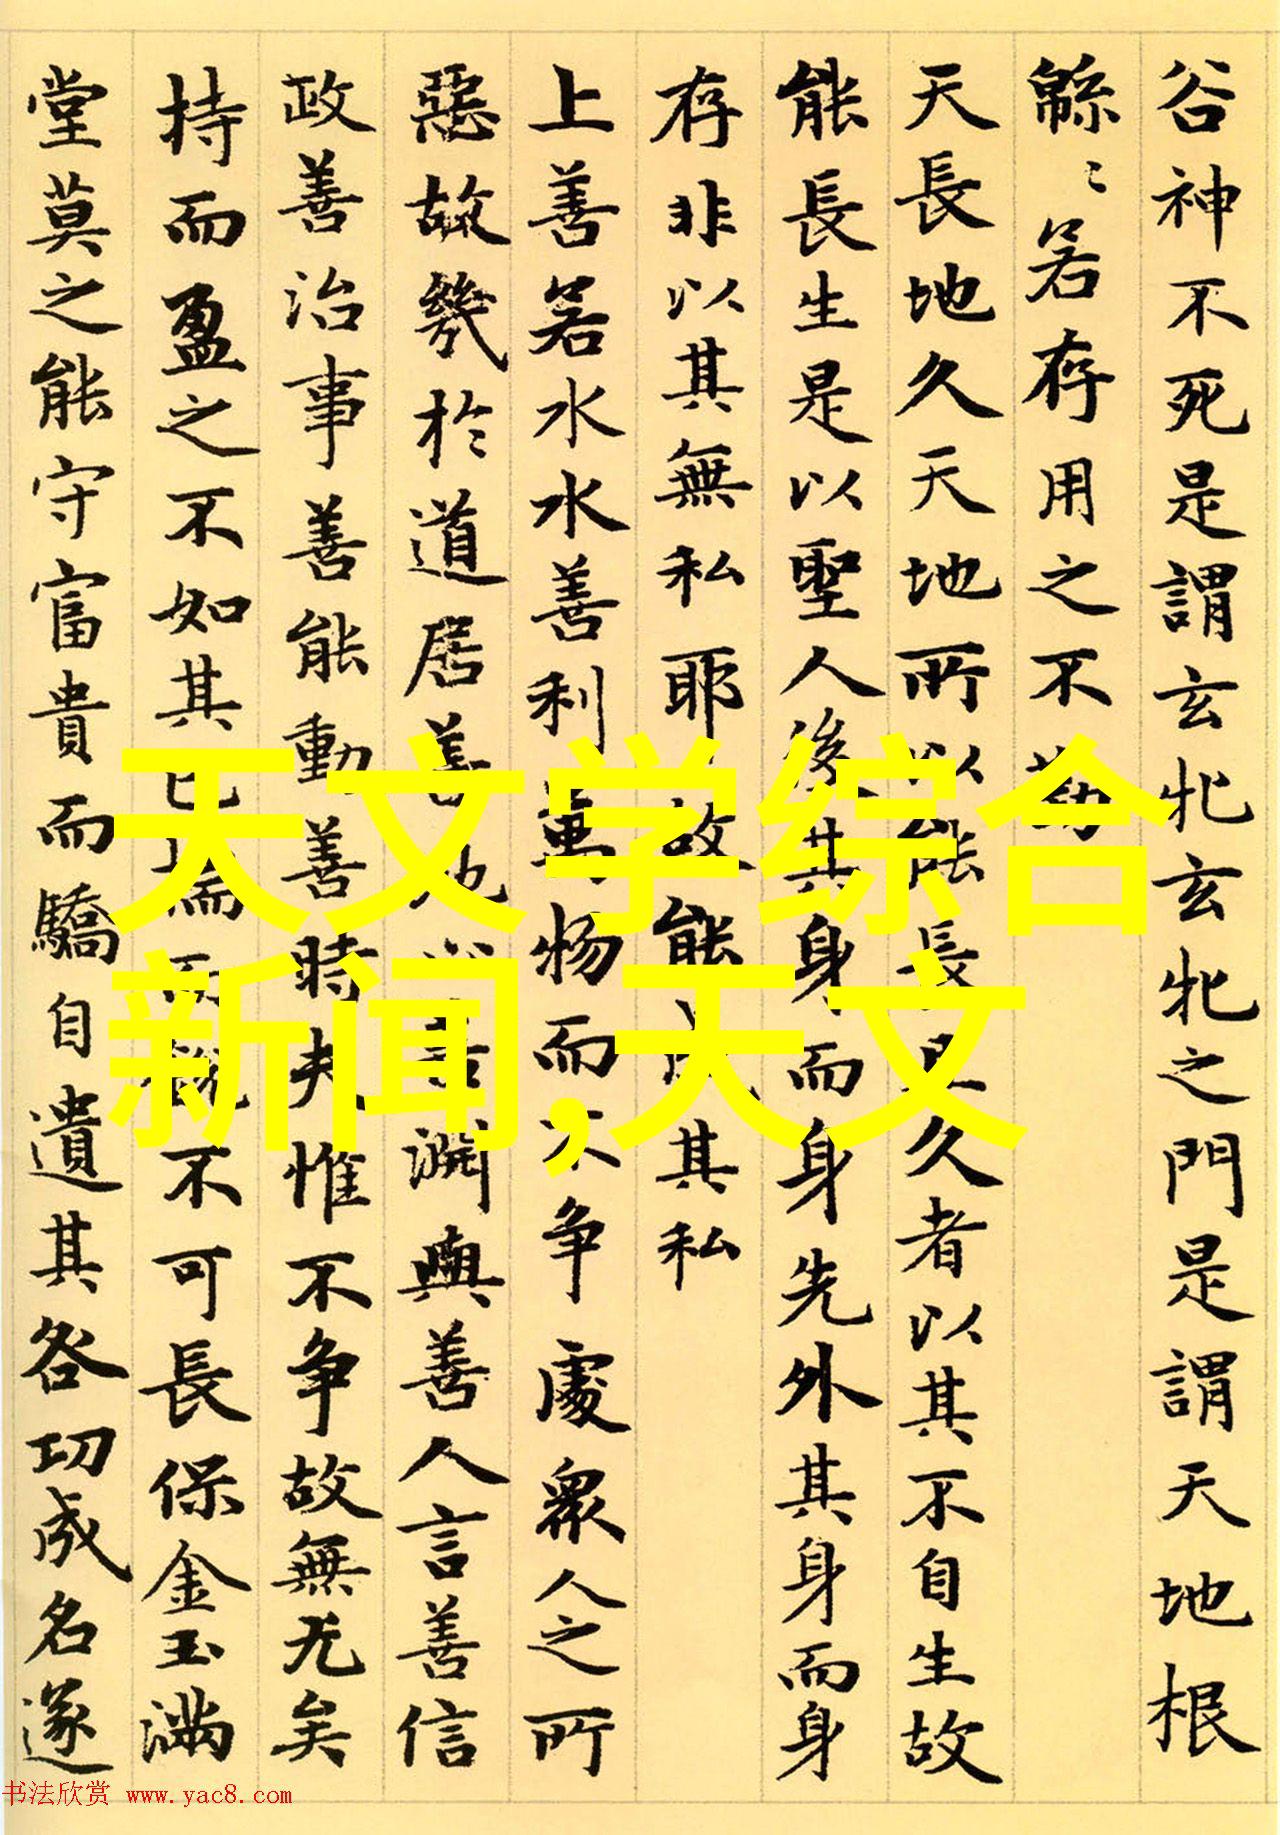 谷神不死是謂玄牝玄牝之門是謂天地根
緜〻若存用之不勤
天長地久天地所以能長且久者以其不自生故
能長生是以聖人後其身而身先外其身而身
存非以其無私耶故能成其私
上善若水水善利萬物而不争處衆人之所
惡故幾於道居善地心善淵與善人言善信
政善治事善能動善時夫惟不争故無尤矣
持而盈之不如其已揣而銳不可長保金玉滿
堂莫之能守富貴而驕自遺其咎功成名遂
天文学综合
新闻,天文
书法欣赏 www.yac8.com